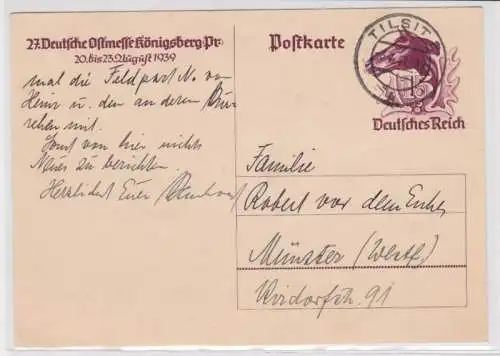 27. Deutsche Ostmesse Königsberg-Pr.
20. bis 23. August 1939
mal die Feldpost N. von
Heinz u. den anderen
mit.
Sonst von hier nichts
Neues zu berichten.
Herzlichst Euer
Postkarte
TILSIT
15
Deutsches Reich
Familie
Robert vor dem
Münster (Westf)
91